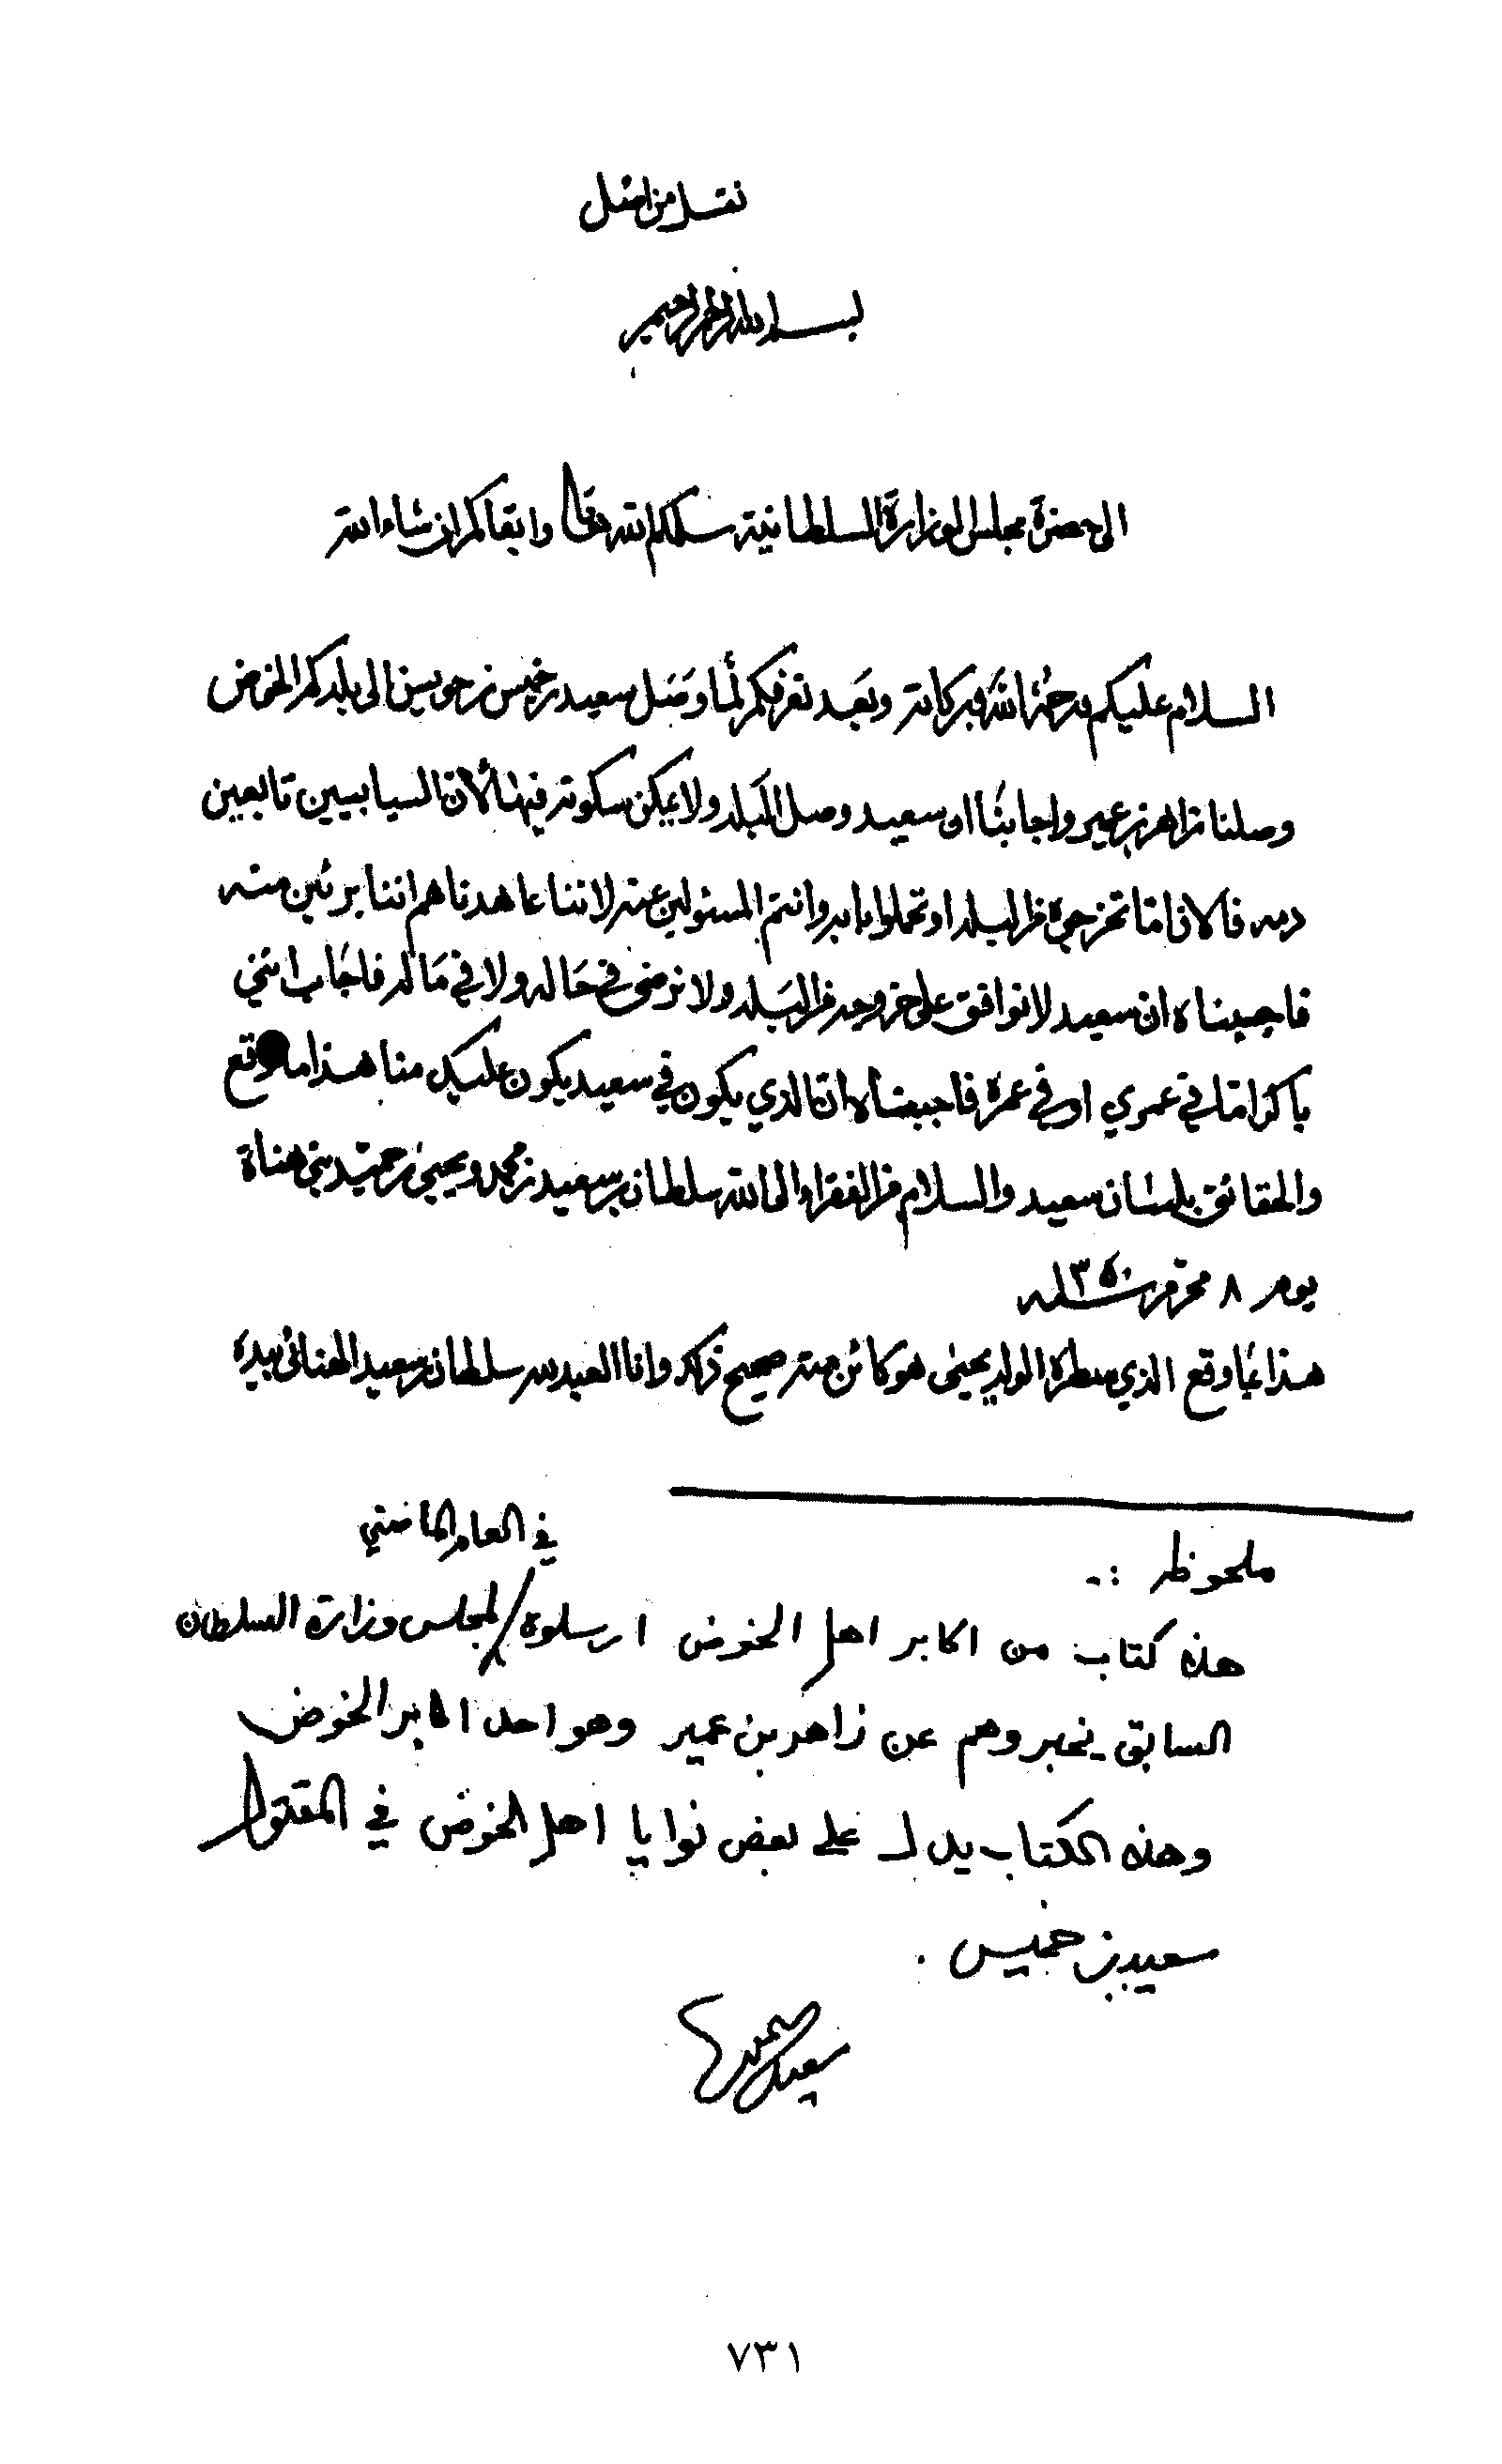 نقل من اصل
بسم الله الرحمن الرحيم
الى حضرة مجلس الوزارة السلطانية سلمكم الله تعالى وابقاكم ان شاء الله
السلام عليكم ورحمة الله وبركاته وبعد نعرفكم لما وصل سعيد بن خميس بن حويسن الى بلدكم الخوض
وصلنا زاهر بن عمير واجابنا ان سعيد وصل البلد ولا يمكن سكونه فيها لأن السيابيين تابعين
دمه فالان اما تخرجوه من البلد او تحملوا بابه وانتم المسئولين عنه لاننا عاهدناهم اننا بريئين منه
فاجبناه ان سعيد لا نوافق على خروجه من البلد ولا نرضى في حاله ولا في ماله فاجاب انني
باكر اما في عمري او في عمره فاجبناه ان الذي يكون في سعيد يكون عليك منا هذا ما وقع
والحقائق بلسان سعيد والسلام من الفقراء الى الله سلطان بن سعيد بن محمد ويحيى بن حميد بني هناة
يوم ٨ محرم سنة ١٣٥٠
هذا ما وقع الذي سطره الولد يحيى هو كائن منه صحيح ذلك وانا العبد لله سلطان بن سعيد الهنائي بيده
في العام الماضي
ملحوظه :-
هذه كتاب من اكابر اهل الخوض ارسلوه / لمجلس وزارة السلطان
السابق يخبروهم عن زاهر بن عمير وهو احد اكابر الخوض
وهذه الكتاب يدل على بعض نوايا اهل الخوض في المقتول
سعيد بن خميس .
٧٣١